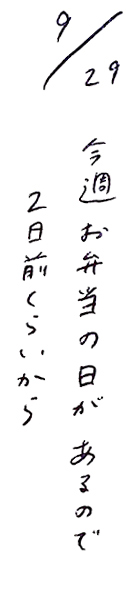 9/29
今週お弁当の日があるので
2日前くらいから